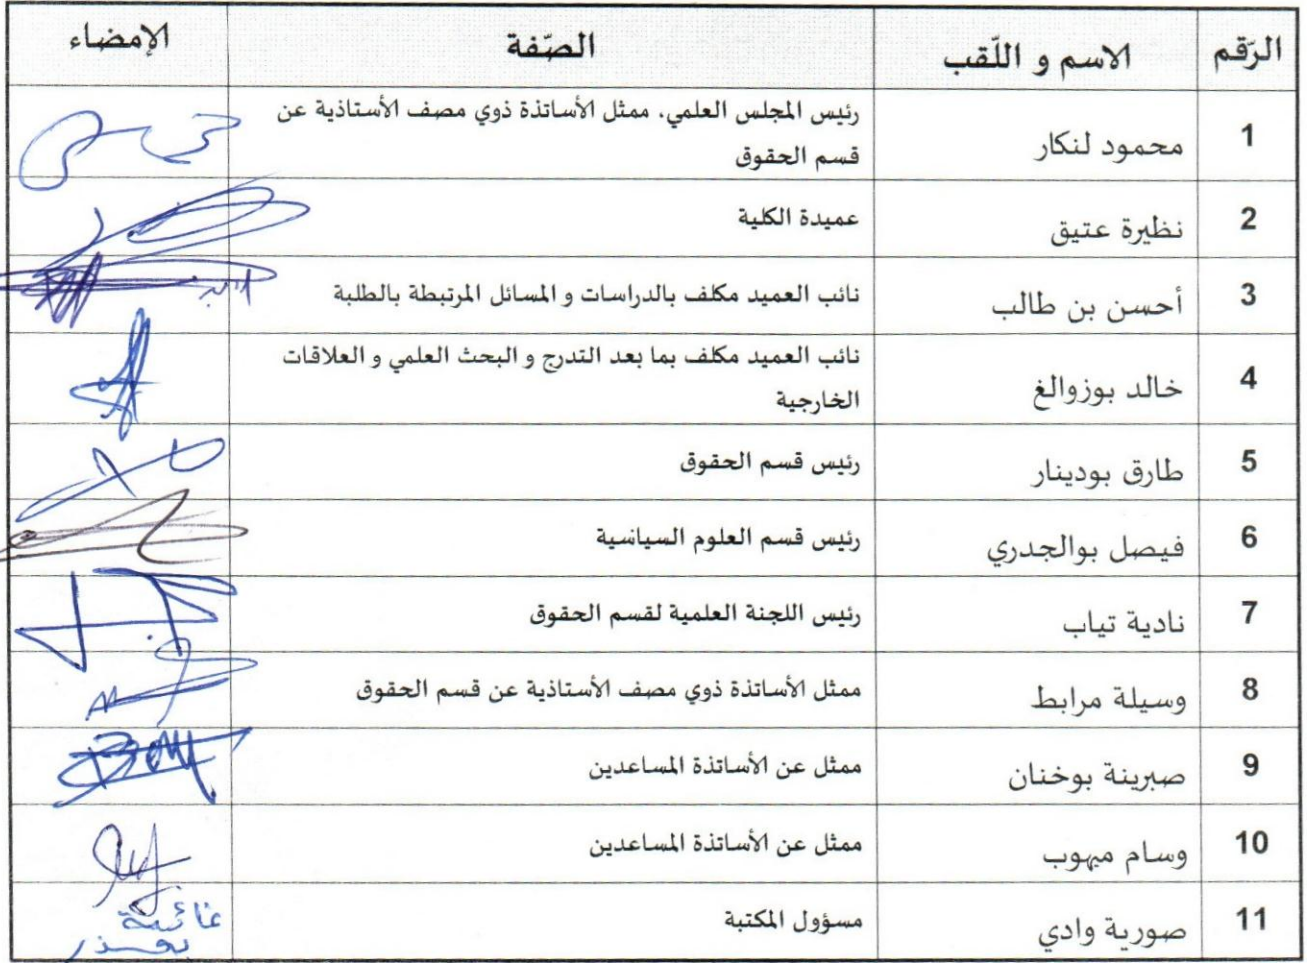 الرّقم الاسم و اللّقب الصّفة الإمضاء
1 محمود لنكار رئيس المجلس العلمي، ممثل الأساتذة ذوي مصف الأستاذية عن
قسم الحقوق
2 نظيرة عتيق عميدة الكلية
3 أحسن بن طالب نائب العميد مكلف بالدراسات و المسائل المرتبطة بالطلبة
4 خالد بوزوالغ نائب العميد مكلف بما بعد التدرج و البحث العلمي و العلاقات
الخارجية
5 طارق بودينار رئيس قسم الحقوق
6 فيصل بوالجدري رئيس قسم العلوم السياسية
7 نادية تياب رئيس اللجنة العلمية لقسم الحقوق
8 وسيلة مرابط ممثل الأساتذة ذوي مصف الأستاذية عن قسم الحقوق
9 صبرينة بوخنان ممثل عن الأساتذة المساعدين
10 وسام ميهوب ممثل عن الأساتذة المساعدين
11 صورية وادي مسؤول المكتبة غائبة
بعذر